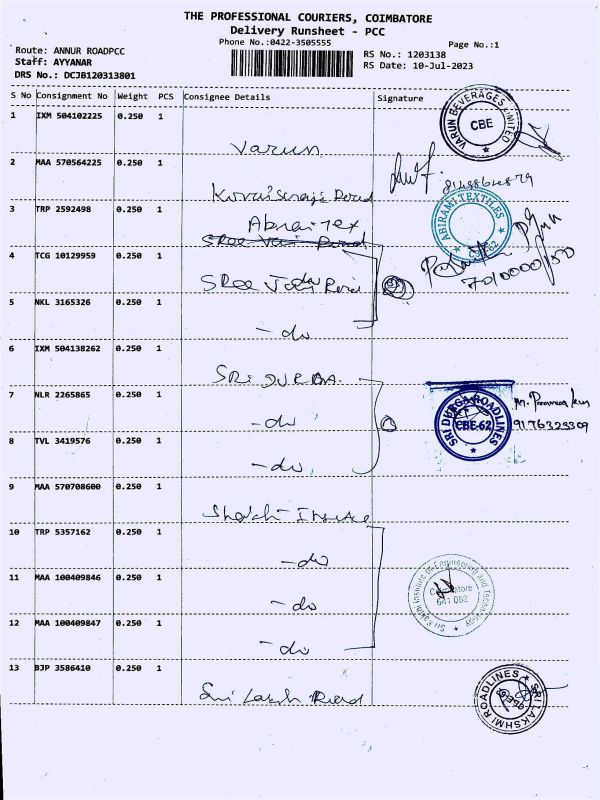 THE PROFESSIONAL COURIERS, COIMBATORE
Delivery Runsheet - PCC
Phone No.:0422-3505555
Page No.:1
Route: ANNUR ROADPCC
Staff: AYYANAR
DRS No.: DCJB120313801
RS No.: 1203138
RS Date: 10-Jul-2023
S No Consignment No Weight PCS Consignee Details Signature
1 IXM 504102225 0.250 1 Varun
VARUN BEVERAGES LIMITED CBE
2 MAA 570564225 0.250 1
3 TRP 2592498 0.250 1
ABIRAMI TEXTILES
4 TCG 10129959 0.250 1 SRee
5 NKL 3165326 0.250 1 - do
6 IXM 504138262 0.250 1 SRi DURGA.
7 NLR 2265865 0.250 1 - do
SRI DURGA ROADLINES CBE-62
9176325309
8 TVL 3419576 0.250 1 - do
9 MAA 570708600 0.250 1
10 TRP 5357162 0.250 1 - do
11 MAA 100409846 0.250 1 - do
Coimbatore 641 062
12 MAA 100409847 0.250 1 - do
13 BJP 3586410 0.250 1 Sri Laksh Road
SRI LAKSHMI ROADLINES